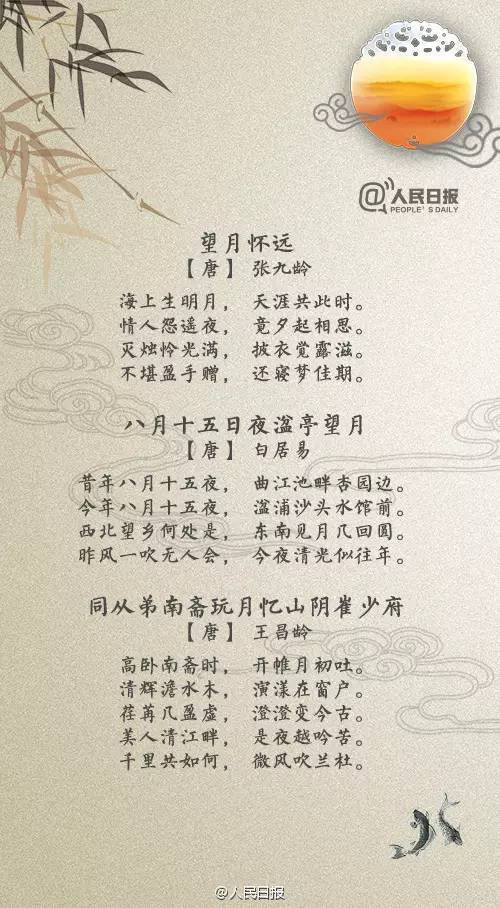 @人民日报
PEOPLE'S DAILY
望月怀远
【唐】 张九龄
海上生明月， 天涯共此时。
情人怨遥夜， 竟夕起相思。
灭烛怜光满， 披衣觉露滋。
不堪盈手赠， 还寝梦佳期。
八月十五日夜湓亭望月
【唐】 白居易
昔年八月十五夜， 曲江池畔杏园边。
今年八月十五夜， 湓浦沙头水馆前。
西北望乡何处是， 东南见月几回圆。
昨风一吹无人会， 今夜清光似往年。
同从弟南斋玩月忆山阴崔少府
【唐】 王昌龄
高卧南斋时， 开帷月初吐。
清辉澹水木， 演漾在窗户。
荏苒几盈虚， 澄澄变今古。
美人清江畔， 是夜越吟苦。
千里共如何， 微风吹兰杜。
@人民日报